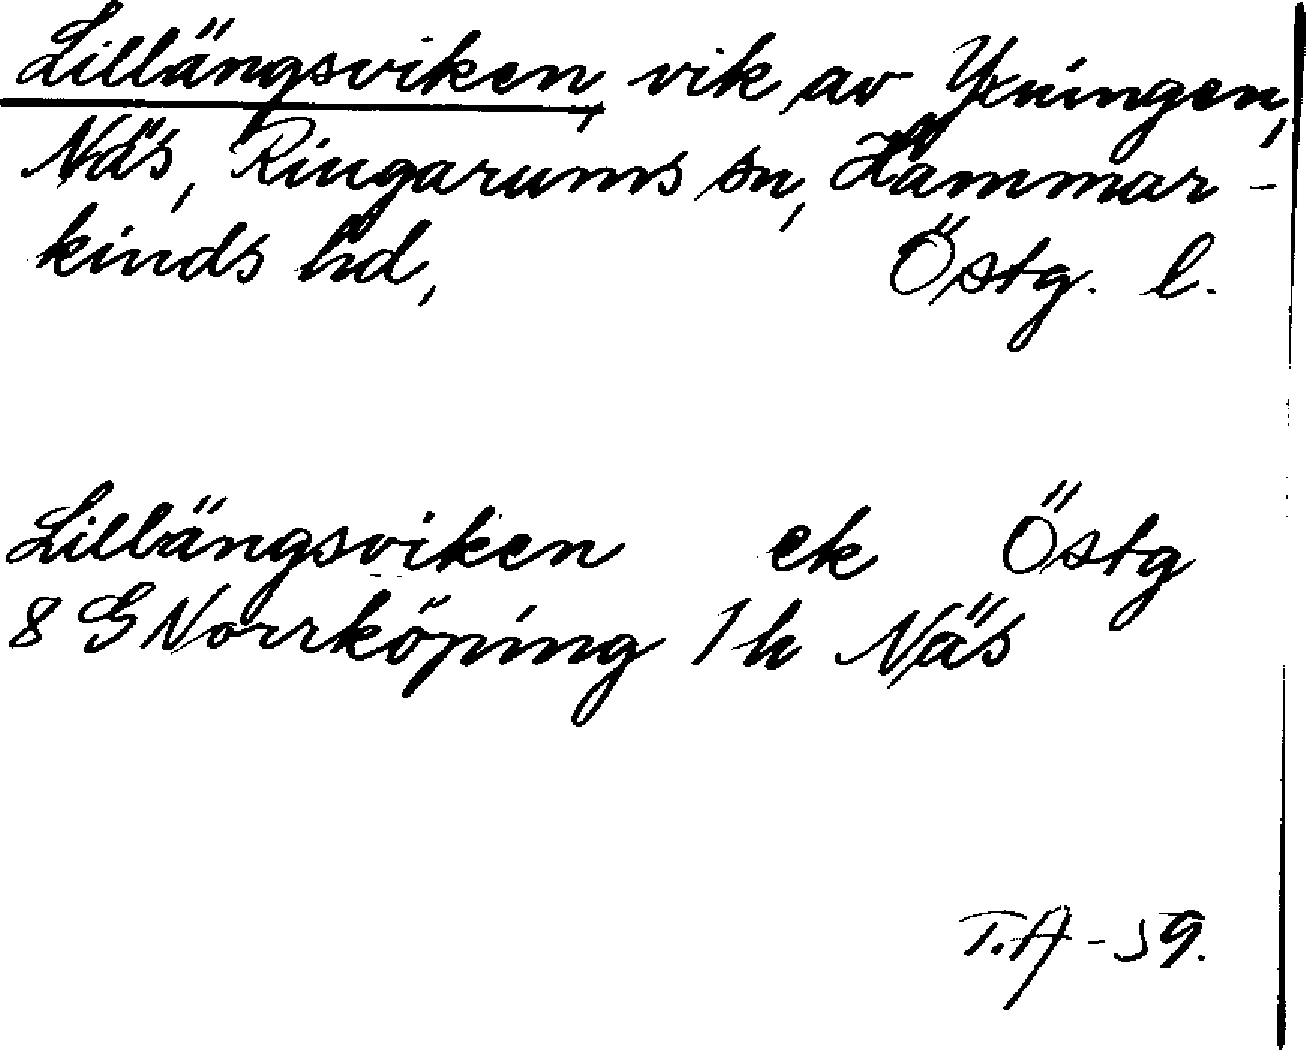 Lillängsviken, vik av Yxningen,
Näs, Ringarums sn, Hammar-
kinds hd, Östg. l.
Lillängsviken ek Östg
8 G Norrköping 1 h Näs
T.A - 59.